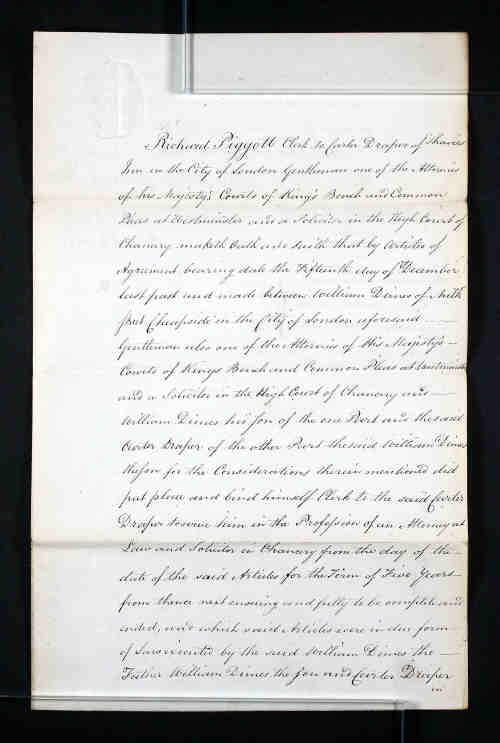 Richard Piggott Clerk to Carter Draper of Thavies
Inn in the City of London Gentleman one of the Attornies
of his Majesty's Courts of King's Bench and Common
Pleas at Westminster and a Solicitor in the High Court of
Chancery maketh Oath and saith that by Articles of
Agreement bearing date the Fifteenth day of December
last past and made between William Dimes of
Street Cheapside in the City of London aforesaid
Gentleman also one of the Attornies of His Majesty's
Courts of Kings Bench and Common Pleas at Westminster
and a Solicitor in the High Court of Chancery and
William Dimes his son of the one Part and the said
Carter Draper of the other Part the said William Dimes
the son for the Considerations therein mentioned did
put place and bind himself Clerk to the said Carter
Draper to serve him in the Profession of an Attorney at
Law and Solicitor in Chancery from the day of the
date of the said Articles for the Term of Five Years
from thence next ensuing and fully to be complete and
ended, and which said Articles were in due form
of Law executed by the said William Dimes the
Father William Dimes the son and Carter Draper